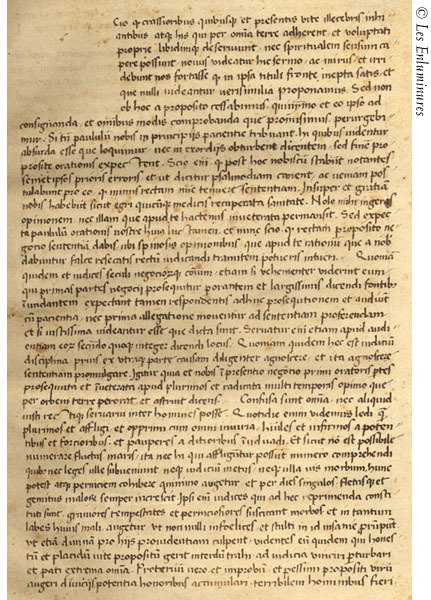 Cio q̃ crassioribus quibusq̨ et presentis vite illecebris inhi
antibus atq̨ his qui per omĩa terre adherent et voluptati
proprie libidiniq̨ deserviunt nec spiritualem sensum ca
pere possunt novus videatur hic sermo ac mirus et irri
debunt nos fortasse q in ipsa tituli fronte inepta satis et
que nulli videantur verisimilia proponamus. Sed non
ob hoc a proposito cessabimus quinimo et eo ipso ad
consignanda et omnibus modis comprobanda que promisimus perurgebi
mur. Si tñ paululũ nobis in principijs pacientie tribuant. In quibus videntur
absurda esse que loquimur nec in exordijs obturbent dicentem sed finẽ pro
posite orationis expectent. Scio eni q post hoc nobiscũ stabũt notantes
semetipsos prioris erroris et ut dicitur psalmodiam canent ac veniam pos
tulabunt pro eo q minus rectam nũc tenuere sententiam. Insuper et gratiã
nobis habebũt sicut egri quicũq̨ medicis recuperata sanitate. Nolo mihi ingeras
opinionem nec illam que apud te hactenus inveterata permansit. Sed expec
ta paululũ orationis nostre
negocio sententiã dabis ubi
dabuntur false resecatis rectũ iudicandi tramitem potueris intueri. Quoniã
quidem et iudices seculi negociorq̨ etiam si vehementer viderint eum
qui primas partes negocij prosequitur perorantem et largissimis dicendi fontib;
inundantem expectant tamen respondentis adhuc prosequtionem et audiũt
cũ pacientia nec prima allegatione moventur ad sententiam proferendam
et si iustissima videantur esse que dicta sunt. Servatur eni etiam apud audi
entiam eor secũdo quoq̨ integer dicendi locus. Quoniam quidem hec est iudiciũ
disciplina prius ex utraq̨ parte causam diligenter agnoscere et ita agnoscere
sententiam promulgare. Igitur quia et nobis ĩ presenti negocio primi oratoris ptes
prosequuta est ĩnveterata apud plurimos et radicata multi temporis opinio que
per orbem terre perorat et astruit dicens. Confusa sunt omĩa nec aliquid
iusti rectiq̨ servari inter homines posse. Quotidie enim videmus lodi q
plurimos et affligi et opprimi cum omni iniuria hũiles et infirmos a poten
tibus et fortioribus et pauperes a ditioribus ĩvadi. Et sicut nõ est possibile
numerare fluctus maris ita nec hi qui affliguntur possũt numero comprehendi
quib; nec leges ulle subveniunt neq̨ iudiciũ metus neq̨ ulla vis morbum hunc
potest atq̨ perniciem cohibere quinimo augetur et per dies singulos fletusq̨ et
gemitus malor semper increscit. Ipsi eni iudices qui ad hec reprimenda consti
tuti sunt graviores tempestates et perniciosiores suscitant morbos et in tantum
labes huius mali augetur ut non nulli infelices et stulti in id insanie prũpũt
ut etiã divinã pro hijs providentiam culpent videntes eũ quidem qui hones
tũ et placidũ vite propositũ gerit interdũ trahi ad iudicia vinciri pturbari
et pati extrema omĩa. Protervũ vero et improbũ et pessimi propositi virũ
augeri divicijs potentia honoribus accumulari terribilem hominibus fieri
© Les Enluminures